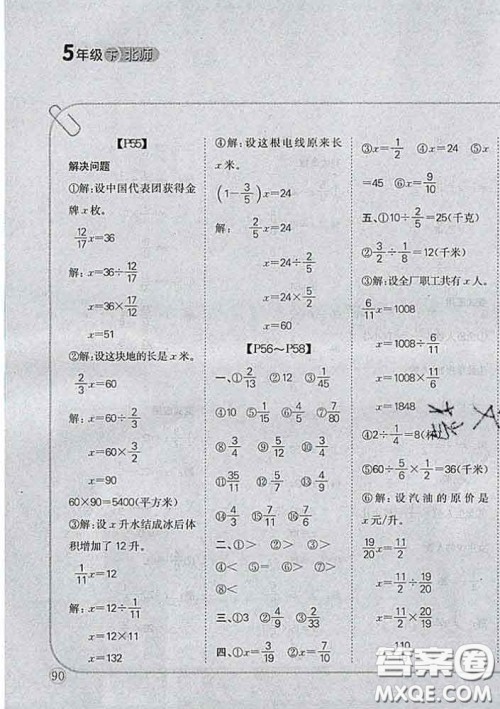 5年级 下 北师
【P55】
解决问题
①解:设中国代表团获得金
牌x枚。
12/17 x=36
解:x=36÷12/17
x=36×17/12
x=51
②解:设这块地的长是x米。
2/3 x=60
解:x=60÷2/3
x=60×3/2
x=90
60×90=5400(平方米)
③解:设x升水结成冰后体
积增加了12升。
1/11 x=12
解:x=12÷1/11
x=12×11
x=132
④解:设这根电线原来长
x米。
(1-3/5)x=24
解:2/5 x=24
x=24÷2/5
x=24×5/2
x=60
【P56～P58】
一、①2/13 ②12 ③1/45
④10 ⑤15/8 ⑥1/2 ⑦4/9
⑧3/4 ⑨5/9 ⑩4/5
⑪35/11 ⑫5/7 ⑬9/10
⑭4/3 ⑮7/58
二、①> ②> ③>
④< ⑤> ⑥> ⑦>
⑧<
三、①3 ②4/9 ③2/33
四、①x=3/19 ②x=4/9
③x=1/2 ④x=24 ⑤x
=45 ⑥x=9/10
五、①10÷2/5=25(千克)
②3/2÷1/8=12(千米)
③解:设全厂职工共有x人。
6/11 x=1008
x=1008÷6/11
x=1008×11/6
x=1848
④2÷1/4=8(
⑤60÷5/6×1/2=36(千米)
⑥解:设汽油的原价是
x元/升。
19/20 x=11/2
x=11/2÷19/20
x=11/2×20/19
110
90
答案圈
MXQE.COM